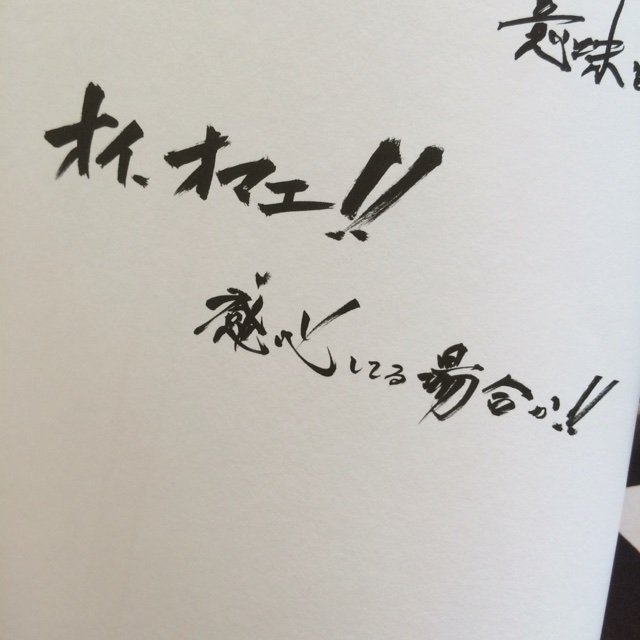 意味
オイ、オマエ!!
感心してる場合か!!